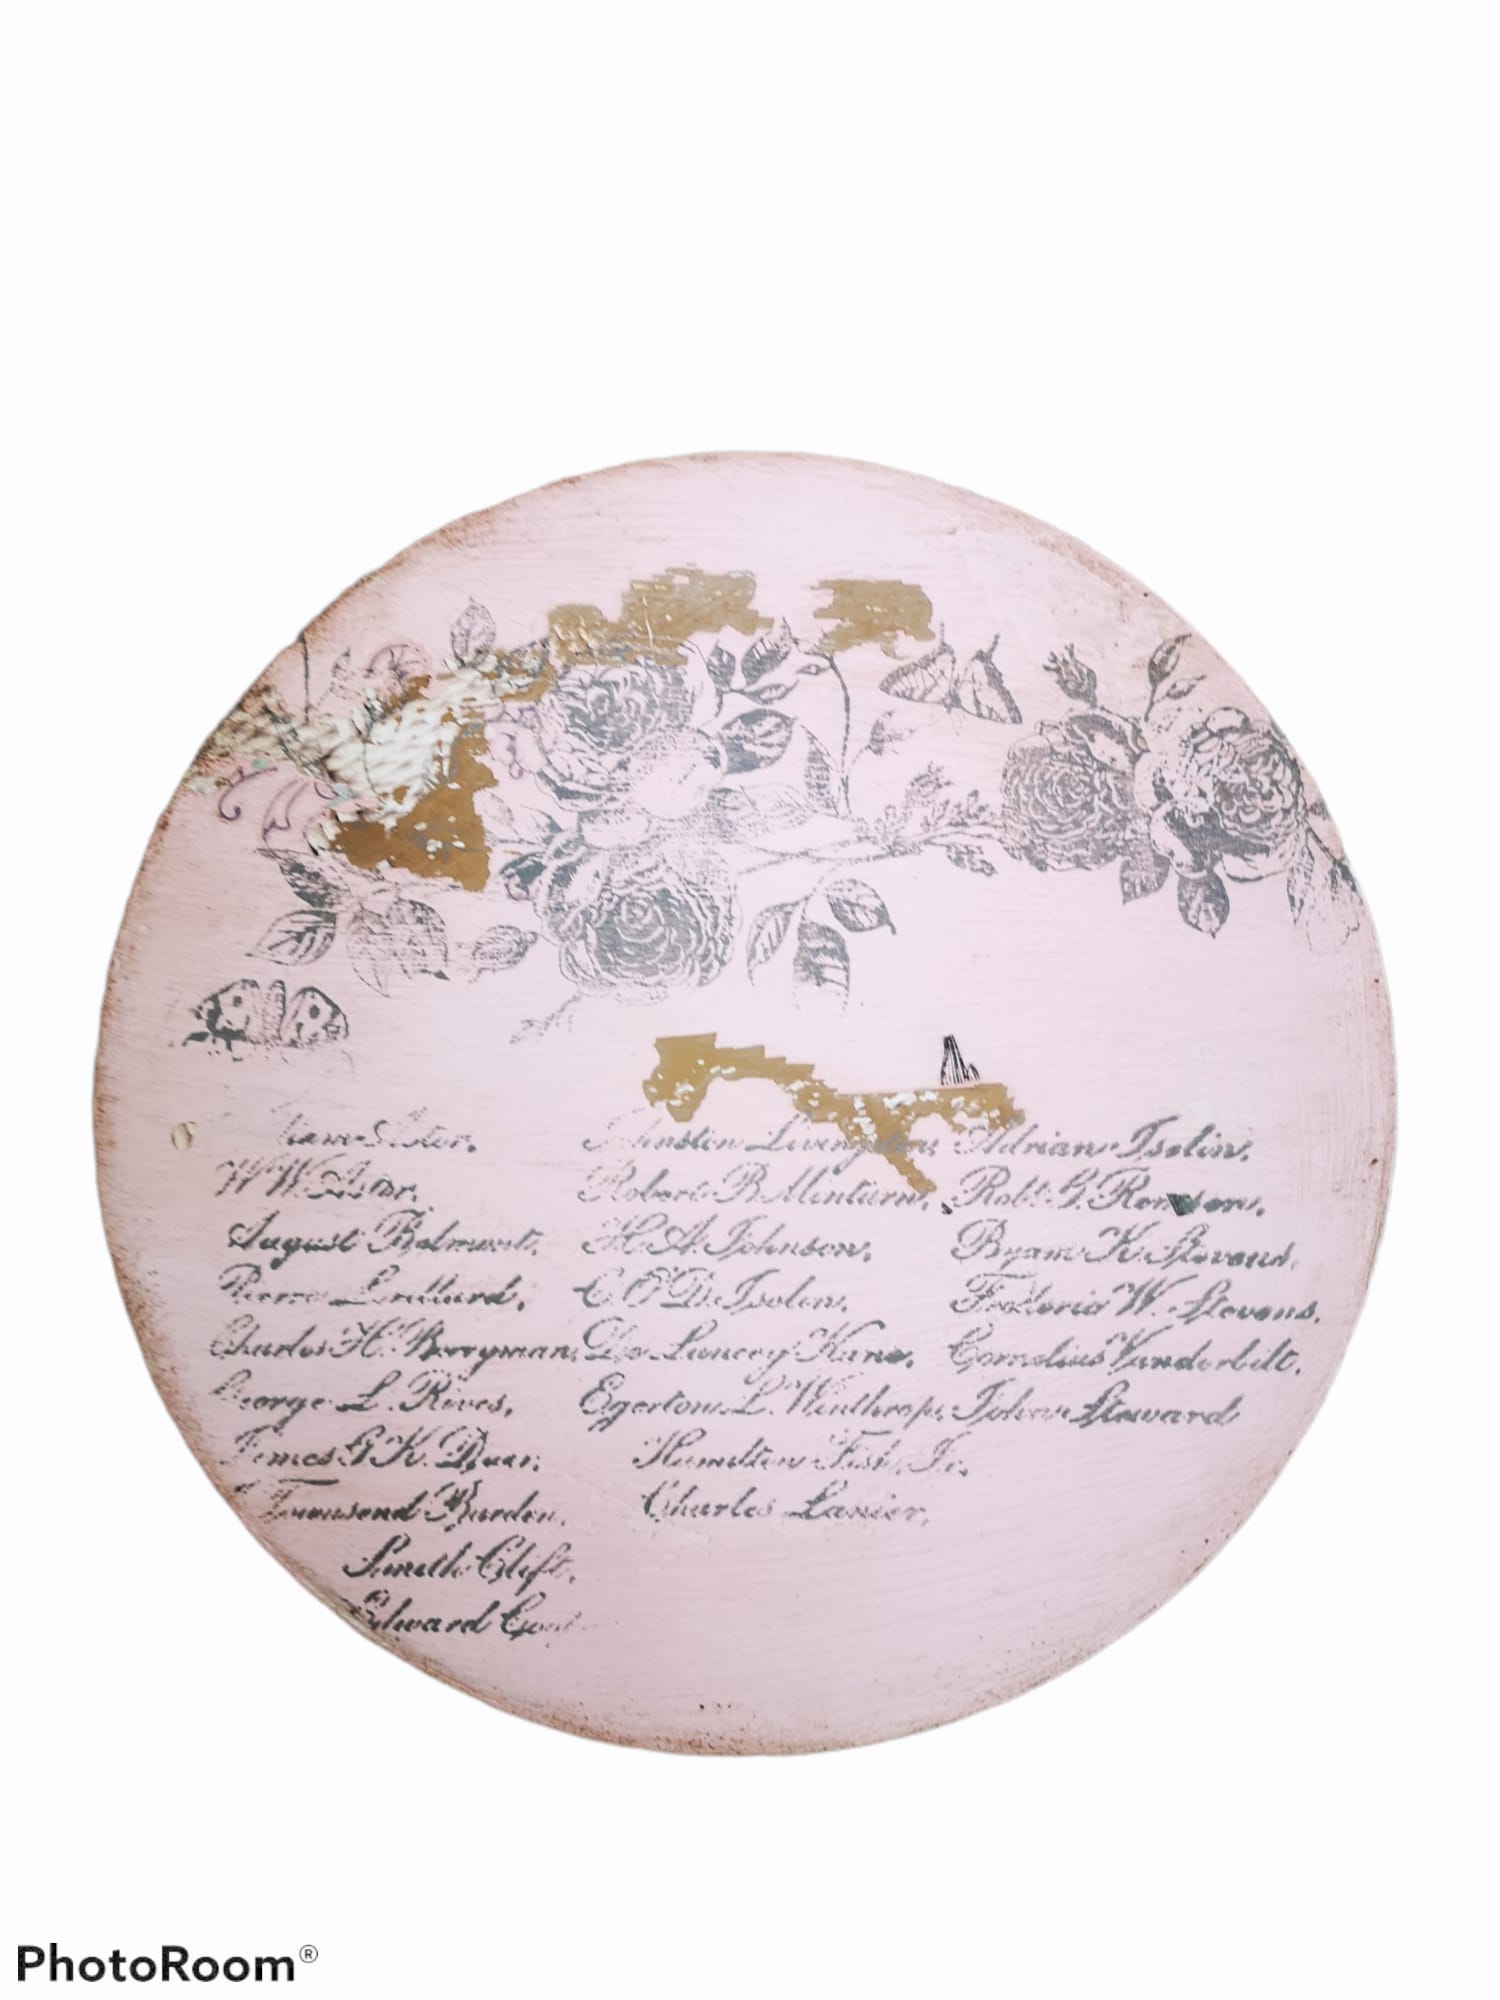 Astor.
W W Astor.
August Belmont.
Pierre Lorillard.
Charles H. Berryman.
George L. Rives.
James G K. Duer.
Townsend Burden.
Smith Clift.
Edward
Johnston Livingston
Robert B Minturn.
H. A. Johnson.
C. O'D. Iselin.
De Lancey Kane.
Egerton L. Winthrop.
Hamilton Fish, Jr.
Charles Lanier.
Adrian Iselin.
Robt. G.
Byam K. Stevens.
Frederic W. Stevens.
Cornelius Vanderbilt.
John Steward
PhotoRoom®